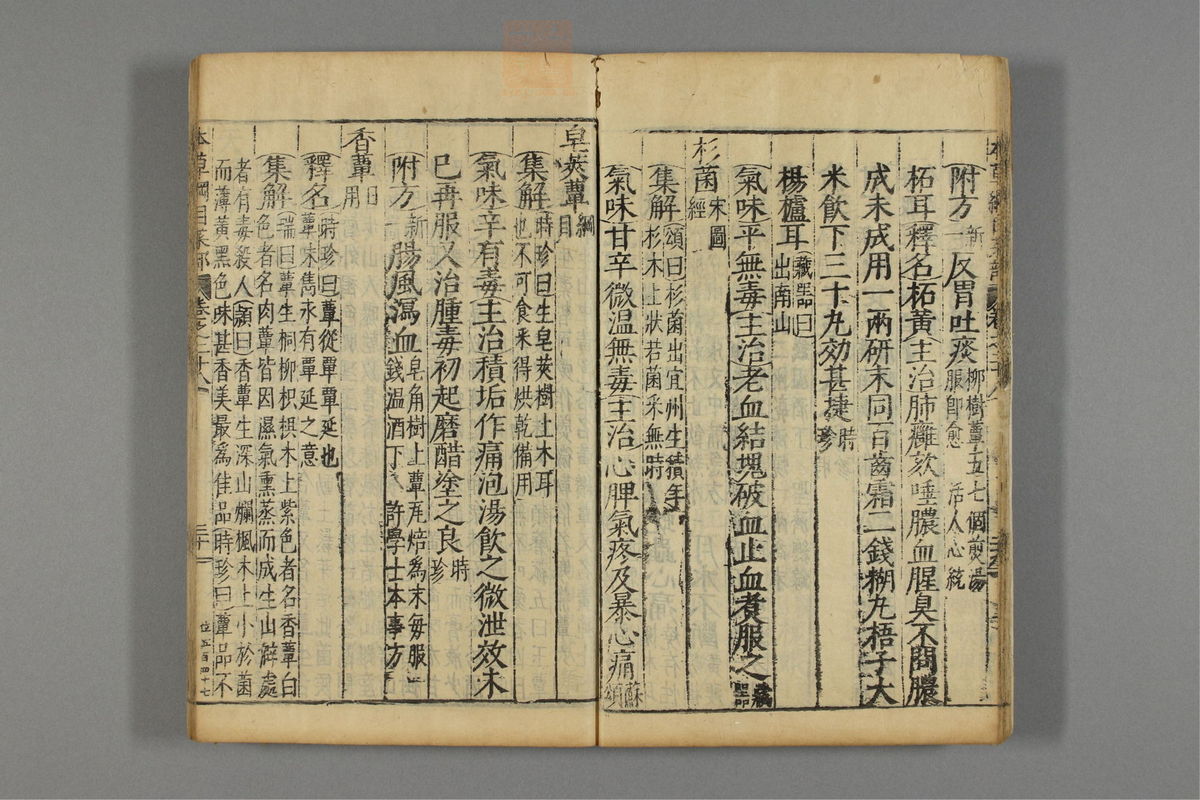 附方新一反胃吐痰柳樹蕈五七個煎湯服即愈活人心統
柘耳釋名柘黃主治肺癰欬唾膿血腥臭不問膿
成未成用一兩研末同百齒霜二錢糊丸梧子大
米飲下三十丸効甚捷時珍
楊櫨耳藏器曰出南山
氣味平無毒主治老血結塊破血止血煑服之藏器
杉菌宋圖經
集解頌曰杉菌出宜州生積年杉木上狀若菌采無時
氣味甘辛微温無毒主治心脾氣疼及暴心痛蘇頌
皂莢蕈綱目
集解時珍曰生皂莢樹上木耳也不可食采得烘乾備用
氣味辛有毒主治積垢作痛泡湯飲之微泄效未
已再服又治腫毒初起磨醋塗之良時珍
附方新一腸風瀉血皂角樹上蕈瓦焙為末每服一錢温酒下許學士本事方
香蕈日用
釋名時珍曰蕈從覃覃延也蕈味雋永有覃延之意
集解瑞曰蕈生桐柳枳椇木上紫色者名香蕈白色者名肉蕈皆因濕氣熏蒸而成生山僻處
者有毒殺人頴曰香蕈生深山爛楓木上小於菌
而薄黃黑色味甚香美最為佳品時珍曰蕈品不
本草綱目菜部 卷之二十八
位五百四十七